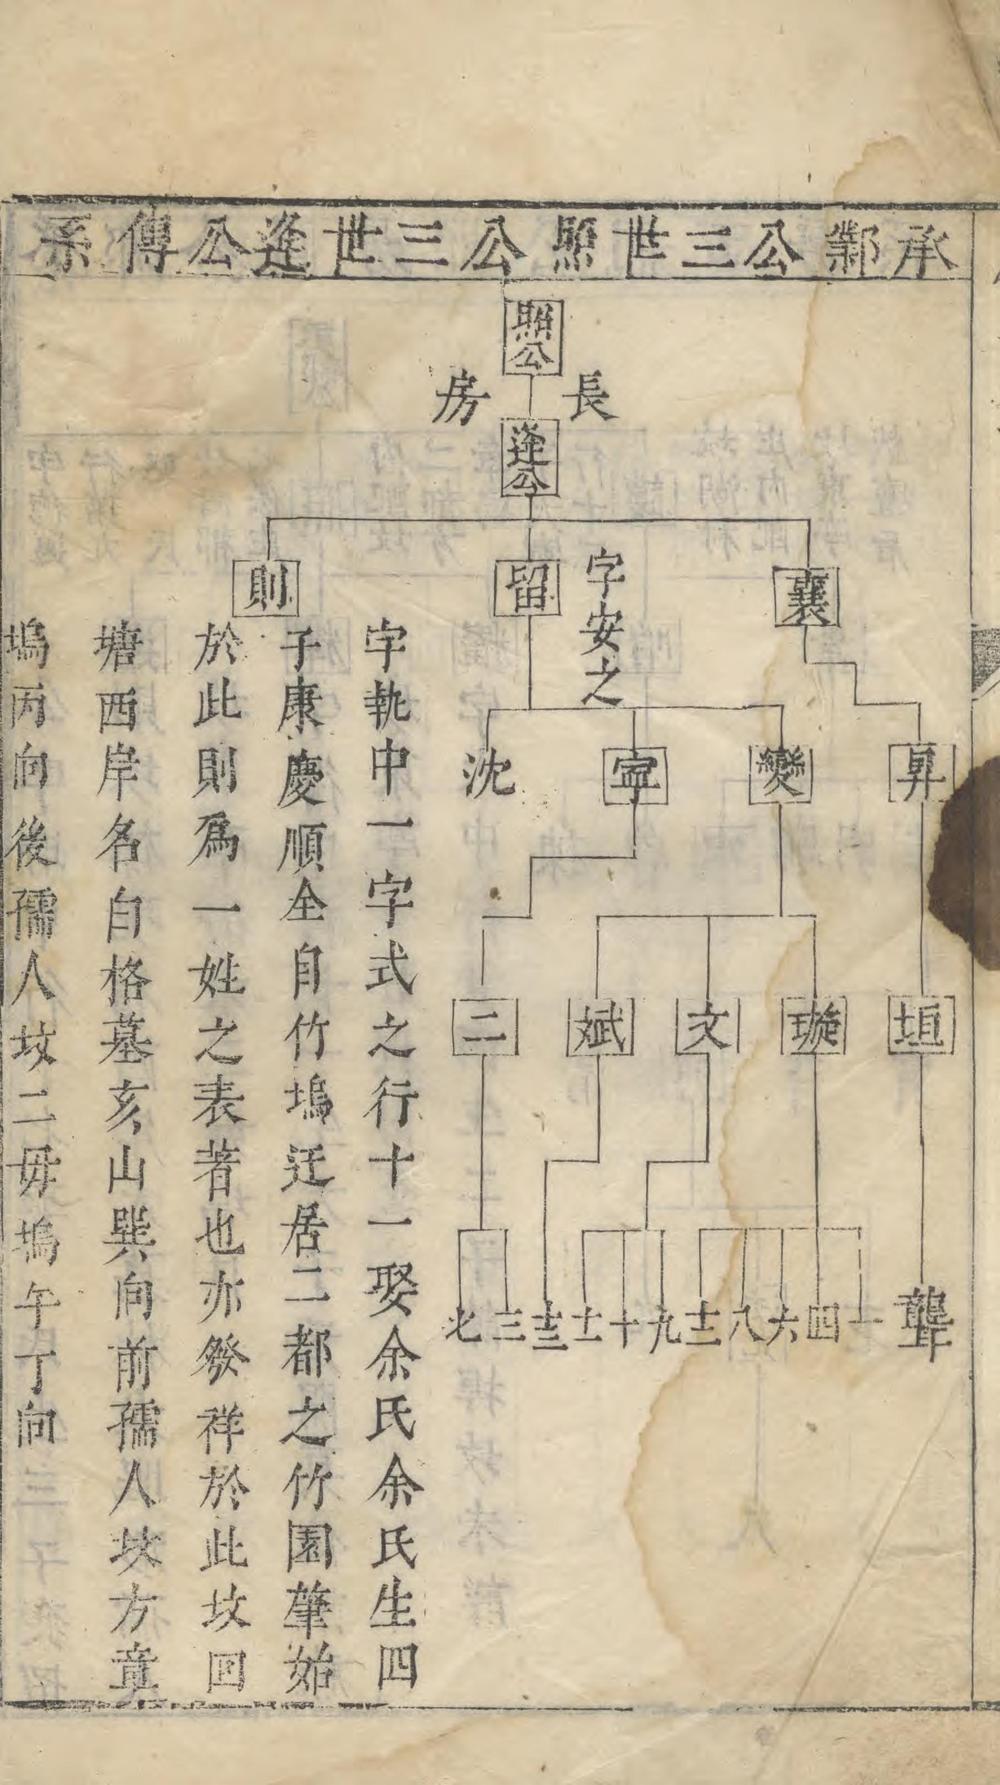 承鄴公三世照公三世逢公傳系
照公
長房
逢公
襄
留
字安之
則
昇
變
寧
沈
垣
璇
文
斌
二
聾
一
四
六
八
十二
九
十
十一
十三
三
七
字執中一字式之行十一娶余氏余氏生四
子康慶順全自竹塢迁居二都之竹園肇始
於此則爲一姓之表著也亦發祥於此坟囬
塘西岸名白格墓亥山巽向前孺人坟方章
塢丙向後孺人坟二毋塢午丁向